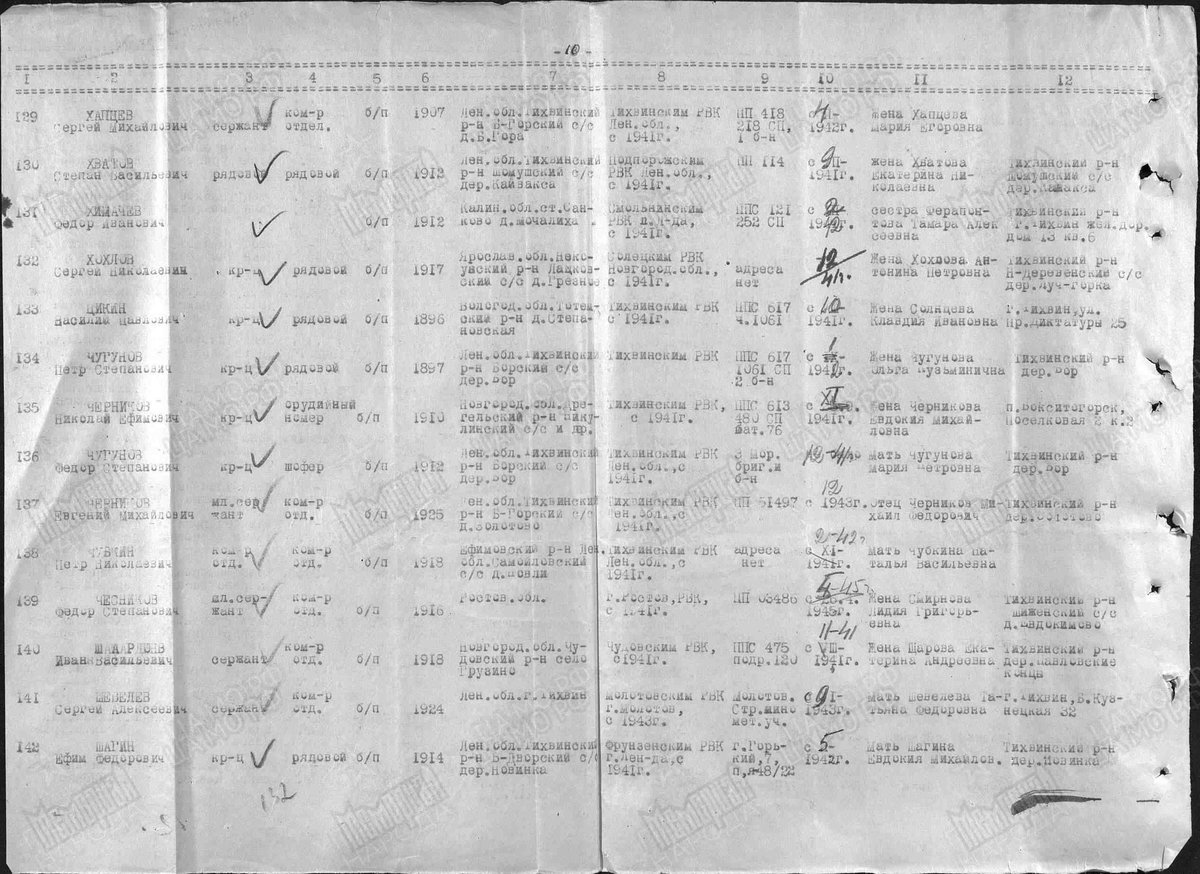 - 10 -
1 2 3 4 5 6 7 8 9 10 11 12
129 ХАПЦЕВ ком-р б/п 1907 Лен.обл.Тихвинский Тихвинским РВК ПП 418 Жена Хапцева
Сергей Михайлович сержант отдел. р-н Б-Горский с/с Лен.обл., 218 СП, 1942г. Мария Егоровна
д.Б.Гора с 1941г. 1 б-н
130 ХВАТОВ Лен.обл.Тихвинский Подпорожским ПП 114 с 9 жена Хватова Тихвинский р-н
Степан Васильевич рядовый рядовой б/п 1912 р-н Шомушский с/с РВК Лен.обл., 1941г. Екатерина Ни- Шомушский с/с
дер.Кайвакса с 1941г. колаевна дер.
131 ХИМАЧЕВ Калин.обл.ст.Сан- Смольнинским ППС 121 с сестра Ферапон- Тихвинский р-н
Федор Иванович б/п 1912 ково д.мочалиха РВК г.Л-да, 252 СП това Тамара Алек г.Тихвин жел.дор.
с 1941г. сеевна дом 13 кв.6
132 ХОХЛОВ Ярослав.обл.Неко- Солецким РВК 12 Жена Хохлова Ан- Тихвинский р-н
Сергей Николаевич кр-ц рядовой б/п 1917 узский р-н Лацков- Новгород.обл., адреса 41г. тонина Петровна Н-Деревенский с/с
ский с/с д.Грезное с 1941г. нет дер.Луч-Горка
133 ЦИКИН Вологод.обл.Тотем- Тихвинским РВК ППС 617 с 10 Жена Солнцева г.Тихвин,ул.
Василий Павлович кр-ц рядовой б/п 1896 ский р-н д.Степа- с 1941г. ч.1061 1941г. Клавдия Ивановна Пр.Диктатуры 25
новская
134 ЧУГУНОВ Лен.обл.Тихвинский Тихвинским РВК ППС 617 с 1 Жена Чугунова Тихвинский р-н
Петр Степанович кр-ц рядовой б/п 1897 р-н Борский с/с 1061 СП 1942г. Ольга Кузьминична дер.Бор
дер.Бор 2 б-н
135 ЧЕРНИЧОВ орудийный Новгород.обл.Дре- Тихвинским РВК, ППС 613 с XI Жена Черникова п.Бокситогорск,
Николай Ефимович кр-ц номер б/п 1910 гельский р-н Пику- с 1941г. 480 СП 1941г. Евдокия Михай- Поселковая 2 к.2
линский с/с и др. бат.76 ловна
136 ЧУГУНОВ Лен.обл.Тихвинский Тихвинским РВК 3 мор. 12-41г. мать Чугунова Тихвинский р-н
Федор Степанович кр-ц шофер б/п 1912 р-н Борский с/с Лен.обл.,с бриг.и Мария Петровна дер.Бор
дер.Бор 1941г. б-н
137 ЧЕРНИКОВ мл.сер- ком-р Лен.обл.Тихвинский Тихвинским РВК ПП 51497 12 с 1943г. отец Черников Ми- Тихвинский р-н
Евгений Михайлович жант отд. б/п 1925 р-н Б-Горский с/с Лен.обл.,с хаил Федорович дер.Золотово
д.Золотово 1941г.
138 ЧУБКИН ком-р ком-р Ефимовский р-н Лен. Тихвинским РВК адреса 2-42г с XI- Мать Чубкина На-
Петр Николаевич отд. отд. б/п 1918 обл.Самойловский Лен.обл.,с нет 1941г. талья Васильевна
с/с д.Шовли 1941г.
139 ЧЕСНИКОВ мл.сер- ком-р Ростов.обл. г.Ростов,РВК, ПП 03486 4-45г Жена Смирнова Тихвинский р-н
Федор Степанович жант отд. б/п 1916 с 1941г. 1945г. Лидия Григорь- с/с
евна д.Евдокимово
140 ком-р Новгород.обл.Чу- Чудовским РВК, ППС 475 11-41 с VIII- Жена Шарова Ека- Тихвинский р-н
Иван Васильевич сержант отд. б/п 1918 довский р-н село с 1941г. подр.120 1941г. терина Андреевна дер.Павловские
Грузино концы
141 ШЕВЕЛЕВ ком-р Лен.обл.г.Тихвин Молотовский РВК Молотов. с 9 Мать Шевелева Та- г.Тихвин,Б.Куз-
Сергей Алексеевич сержант отд. б/п 1924 г.Молотов, Стр.мино 1943г. тьяна Федоровна нецкая 32
с 1943г. мет.уч.
142 ШАГИН Лен.обл.Тихвинский Фрунзенским РВК г.Горь- с 5- Мать Шагина Тихвинский р-н
Ефим Федорович кр-ц рядовой б/п 1914 р-н Б-Дворский с/с г.Лен-да,с кий,7, 1942г. Евдокия Михайлов. дер.Новинка
дер.Новинка 1941г. п,я48/22
132